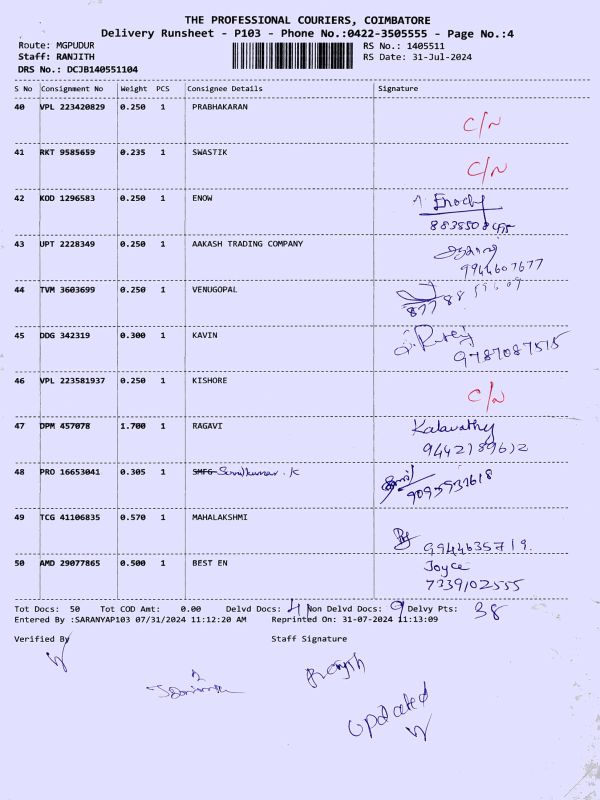 THE PROFESSIONAL COURIERS, COIMBATORE
Delivery Runsheet - P103 - Phone No.:0422-3505555 - Page No.:4
Route: MGPUDUR RS No.: 1405511
Staff: RANJITH RS Date: 31-Jul-2024
DRS No.: DCJB140551104
S No Consignment No Weight PCS Consignee Details Signature
40 VPL 223420829 0.250 1 PRABHAKARAN C/N
41 RKT 9585659 0.235 1 SWASTIK C/N
42 KOD 1296583 0.250 1 ENOW
43 UPT 2228349 0.250 1 AAKASH TRADING COMPANY
9944607677
44 TVM 3603699 0.250 1 VENUGOPAL
45 DDG 342319 0.300 1 KAVIN
9787087515
46 VPL 223581937 0.250 1 KISHORE C/N
47 DPM 457078 1.700 1 RAGAVI Kalavathy
9442189612
48 PRO 16653041 0.305 1 SMFG Senthilkumar. K
9095932618
49 TCG 41106835 0.570 1 MAHALAKSHMI
9944635719.
50 AMD 29077865 0.500 1 BEST EN Joyce
7339102555
Tot Docs: 50 Tot COD Amt: 0.00 Delvd Docs: 41 Non Delvd Docs: 9 Delvy Pts: 38
Entered By :SARANYAP103 07/31/2024 11:12:20 AM Reprinted On: 31-07-2024 11:13:09
Verified By Staff Signature
updated